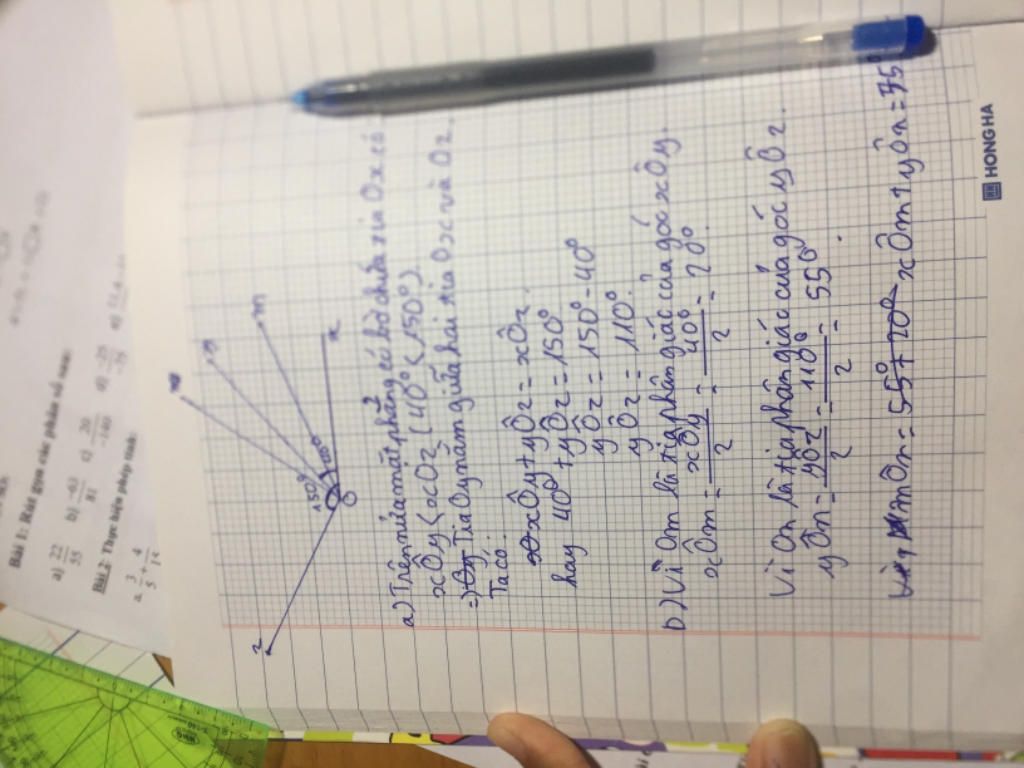 Bài 1: Rút gọn các phân số sau:
a) 22/55 b) -63/81 c) 20/-140 d) -25/-75
Bài 2: Thực hiện phép tính:
a. 3/5 +
z
n
y
m
x
O
150°
a) Trên nửa mặt phẳng có bờ chứa tia Ox có
xÔy < xOz (40° < 150°).
=) Tia Oy nằm giữa hai tia Ox và Oz.
Ta có:
xÔy + yÔz = xÔz.
hay 40° + yÔz = 150°
yÔz = 150° - 40°
yÔz = 110°.
b) Vì Om là tia phân giác của góc xÔy.
xÔm = xÔy/2 = 40°/2 = 20°.
Vì On là tia phân giác của góc yÔz.
yÔn = yÔz/2 = 110°/2 = 55°.
mÔn = 55° + 20° xÔm + yÔn = 75°
HONG HA